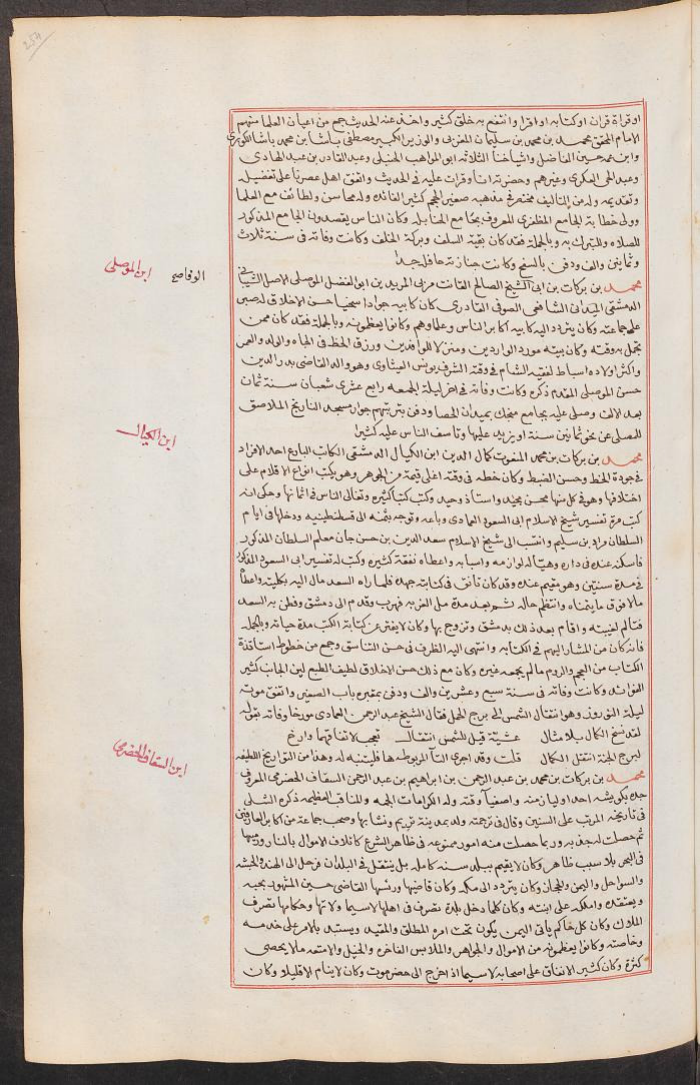 254
او قراة قران او كتابه او اقرا وانتفع به خلق كثير واخذ عنه الحديث جمع من اعيان العلما منهم
الامام المحقق محمد بن محمد بن سليمان المغربى والوزير الكبير مصطفى باشا بن محمد باشا الكوبرى
وابن عمه حسين الفاضل واشياخنا الثلاثه ابو المواهب الحنبلى وعبد القادر بن عبد الهادى
وعبد الحى العكرى وغيرهم وحضرته انا وقرات عليه فى الحديث واتفق اهل عصرنا على تفضيله
وتقديمه وله من التاليف مختصر فى مذهبه صغير الحجم كثير الفائده وله محاسن ولطائف مع العلما
وولى خطابة الجامع المظفرى المعروف بجامع الحنابله وكان الناس يقصدون الجامع المذكور
للصلاه وللتبرك به وبالجمله فقد كان بقية السلف وبركة الخلف وكانت وفاته فى سنة ثلاث
وثمانين والف ودفن بالسفح وكانت جنازته حافلة جدا
ابن الموصلى
محمد بن بركات بن ابى الشيخ الصالح القانت مربى المريد بن ابو الفضل الموصلى الاصل الشيبانى
الدمشقى الميدانى الشافعى الصوفى القادرى كان كابيه جوادا سخيا حسن الاخلاق له صبر
على جماعته وكان يتردد اليه كابيه اكابر الناس وعلماوهم وكانوا يعظمونه وبالجملة فقد كان ممن
تجمل به وقته وكان بيته مورد الواردين ومنزلا للوافدين ورزق الحظ فى الجاه والولد والعمر
واكثر اولاده اسباط لفقيه الشام فى وقته الشرف يونس العيثاوى وهو والد القاضى بدر الدين
حسن الموصلى المقدم ذكره وكانت وفاته فى اخر ليلة الجمعه رابع عشرى شعبان سنة ثمان
بعد الالف وصلى عليه بجامع منجك بميدان الحصا ودفن بتربتهم جوار مسجد النارنج الملاصق
للمصلى عن نحو ثمانين سنة او يزيد عليها وتاسف الناس عليه كثيرا
ابن الكيال
محمد بن بركات بن محمد المنعوت كمال الدين ابن الكيال الدمشقى الكاتب البارع احد الافراد
فى جودة الخط وحسن الضبط وكان خطه فى وقته اغلى قيمة من الجوهر وهو يكتب انواع الاقلام على
اختلافها وهو فى كل منها محسن مجيد واستاذ وحيد وكتب كتبا كثيره وتغالى الناس فى اثمانها وحكى انه
كتب مرة تفسير شيخ الاسلام ابى السعود العمادى وباعه وتوجه بثمنه الى قسطنطينيه ودخلها فى ايام
السلطان مراد بن سليم وانتسب الى شيخ الاسلام سعد الدين بن حسن جان معلم السلطان المذكور
فاسكنه عنده فى داره وهيا له لوازمه واسبابه واعطاه نفقة كثيره وكتب له تفسير ابى السعود المذكور
فى مدة سنتين وهو مقيم عنده وقد كان تانق فى كتابته جهده فلما راه السعد مال اليه بكليته واعطاه
مالا فوق ما يتمناه وانتظم حاله ثم بعد مدة مل الغربه فهرب وقدم الى دمشق وفطن به السعد
فتالم لغيبته واقام بعد ذلك بدمشق وتزوج بها وكان لا يفتر عن كتابة الكتب مدة حياته وبالجمله
فانه كان من المشار اليهم فى الكتابه وانتهى اليه الظرف فى حسن التناسق وجمع من خطوط اساتذة
الكتاب من العجم والروم ما لم يجمعه غيره وكان مع ذلك حسن الاخلاق لطيف الطبع لين الجانب كثير
الفوائد وكانت وفاته فى سنة سبع وعشرين والف ودفن بمقبرة باب الصغير واتفق موته
ليلة النوروز وهو انتقال الشمس الى برج الحمل فقال الشيخ عبد الرحمن العمادى مورخا وفاته بقوله
لقد نسخ الكمال بلا مثال عشية قيل للشمس انتقال تعجب لاتفاقهما وارخ
لبرج الجنة انتقل الكمال قلت وقد اجرى التآ المربوطه هآ فليتنبه له وهذا من التواريخ اللطيفه
ابن السقاف الحضرمى
محمد بن بركات بن محمد بن عبد الرحمن بن ابراهيم بن عبد الرحمن السقاف الحضرمى المعروف
جده بكريشه احد اوليا زمنه واصفيآ وقته وله الكرامات الجمه والمناقب العظيمه ذكره الشلى
فى تاريخه المرتب على السنين وقال فى ترجمته ولد بمدينة تريم ونشا بها وصحب جماعة من اكابر العارفين
ثم حصلت له جذبه وربما حصلت منه امور ممنوعه فى ظاهر الشرع كاتلاف الاموال بالنار ورميها
فى البحر بلا سبب ظاهر وكان لا يقيم ببلد سنه كامله بل يتنقل فى البلدان فرحل الى الهند والحبشه
والسواحل واليمن والحجاز وكان يتردد الى مكه وكان قاضيها ورئيسها القاضى حسين المشهور يحبه
ويعتقده واملكه على ابنته وكان كلما دخل بلدة تصرف فى اهلها لا سيما ولاتها وحكامها تصرف
الملاك وكان كل حاكم ياتى اليمن يكون تحت امره المطلق والمقيد ويستبد بالامر على خدمه
وخاصته وكانوا يعظمونه من الاموال والجواهر والملابس الفاخره والخيل والامتعه ما لا يحصى
كثرة وكان كثير الانفاق على اصحابه لا سيما اذا خرج الى حضرموت وكان لا ينام الا قليلا وكان